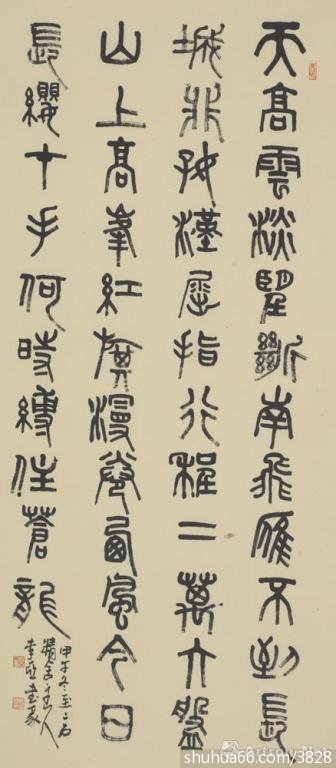 天高雲淡望斷南飛雁不到長
城非好漢屈指行程二萬六盤
山上高峰紅旗漫卷西風今日
長纓在手何時縛住蒼龍
甲午冬至
主人
書篆
shuhua66.com/3828